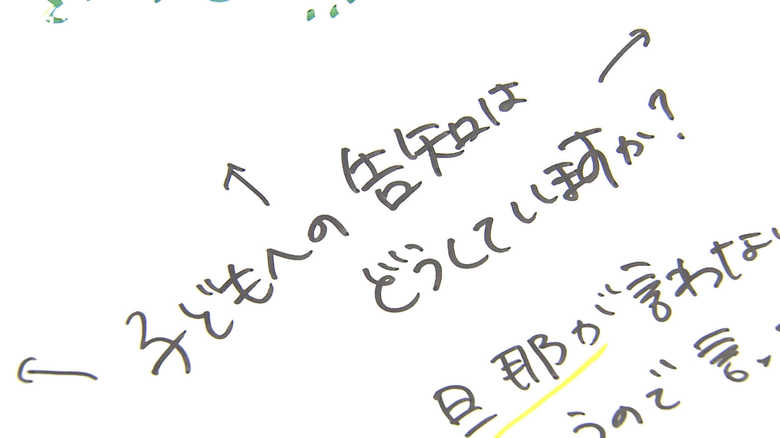 子どもへの 告知は
どうしていますか?
旦那が言わない
うので言